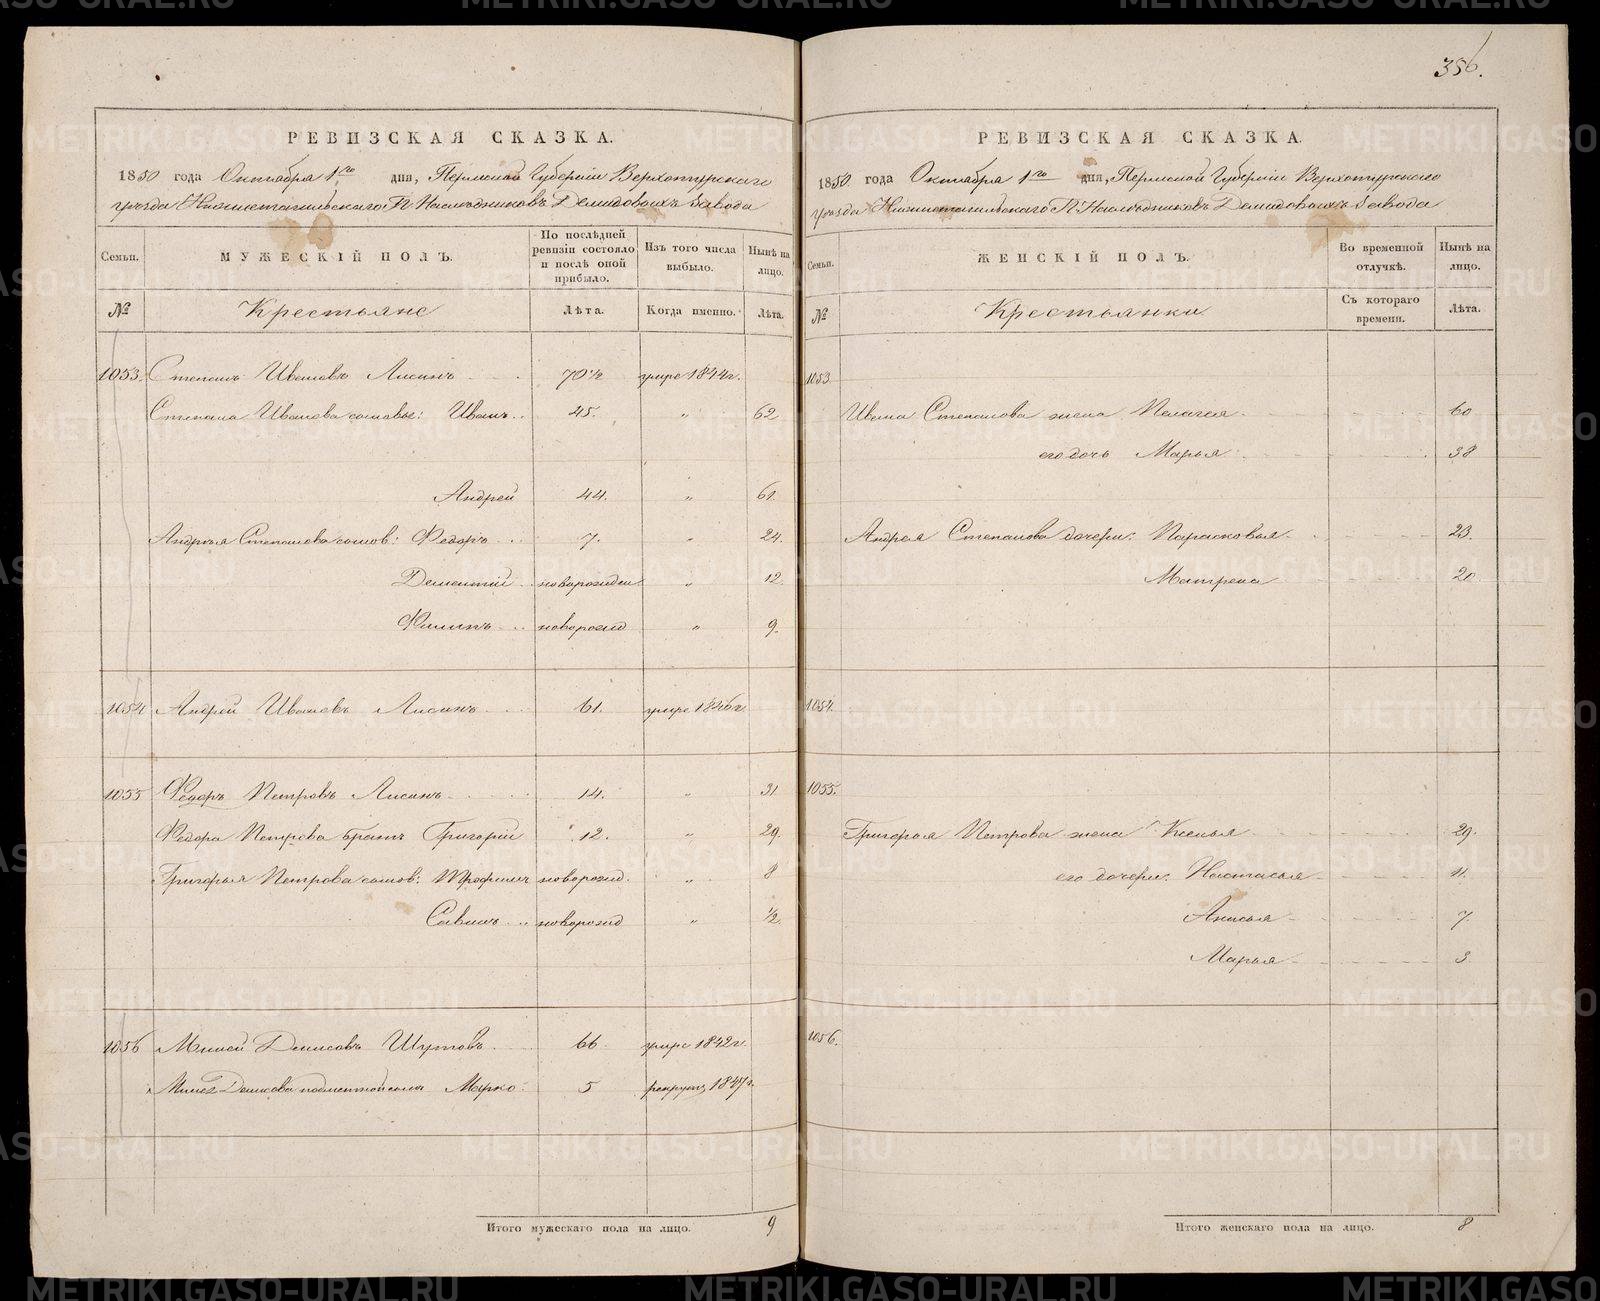 356.
РЕВИЗСКАЯ СКАЗКА.
1850 года Октября 1го дня, Пермской Губерніи Верхотурскаго
уѣзда Нижнетагильскаго П. Наслѣдниковъ Демидовыхъ Завода
Семьи.
МУЖЕСКІЙ ПОЛЪ.
По послѣдней ревизіи состояло и послѣ оной прибыло.
Изъ того числа выбыло.
Нынѣ на лицо.
№
Крестьяне
Лѣта.
Когда именно.
Лѣта.
1053. Степанъ Ивановъ Лисинъ 70½ умре 1844г.
Степана Иванова сыновья: Иванъ 45. " 62
Андрей 44. " 61.
Андрея Степанова сынов: Федоръ 7. " 24.
Дементій новорожден " 12.
Филипъ новорожд " 9.
1054 Андрей Ивановъ Лисинъ 61. умре 1846г.
1055 Федоръ Петровъ Лисинъ 14. " 31
Федора Петрова братъ Григорій 12. " 29.
Григорья Петрова сынов: Трофимъ новорожд. " 8
Савинъ новорожд " ½
1056 Миней Денисовъ Шутовъ 66 умре 1842г.
Минея Денисова Марко 5 рекрут. 1847г.
Итого мужескаго пола на лицо. 9
РЕВИЗСКАЯ СКАЗКА.
1850 года Октября 1го дня, Пермской Губерніи Верхотурскаго
уѣзда Нижнетагильскаго П. Наслѣдниковъ Демидовыхъ Завода
Семьи.
ЖЕНСКІЙ ПОЛЪ.
Во временной отлучкѣ.
Нынѣ на лицо.
№
Крестьянки
Съ котораго времени.
Лѣта.
1053.
Ивана Степанова жена Пелагея 60
его дочь Марья 38
Андрея Степанова дочери: Парасковья 23.
Матрена 20
1054.
1055.
Григорья Петрова жена Ксенья 29.
его дочери: Настасья 11.
Анисья 7.
Марья 3
1056.
Итого женскаго пола на лицо. 8
METRIKI.GASO-URAL.RU